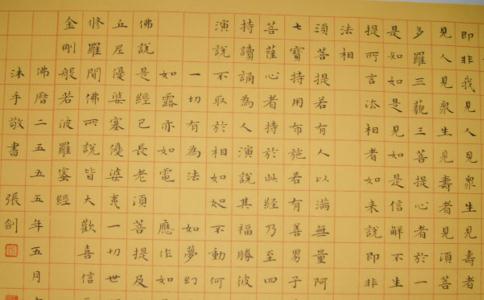 即非我見人見眾生見壽者
見人見眾生見壽者見須菩
多羅三藐三菩提心者於一
是知如是見如是信解不生
提所言法相者如來說即非
法相
須菩提若有人以滿無量阿
七寶持用布施若有善男子
菩薩心者持於此經乃至四
持讀誦為人演說其福勝彼
演說不取於相如如不動何
一切有為法 如夢幻
如露亦如電 應作如
佛說是經已長老須菩提及
丘尼優婆塞優婆夷一切世
修羅聞佛所說皆大歡喜信
金剛般若波羅蜜經
佛曆二五五五年五月
沐手敬書 張劍